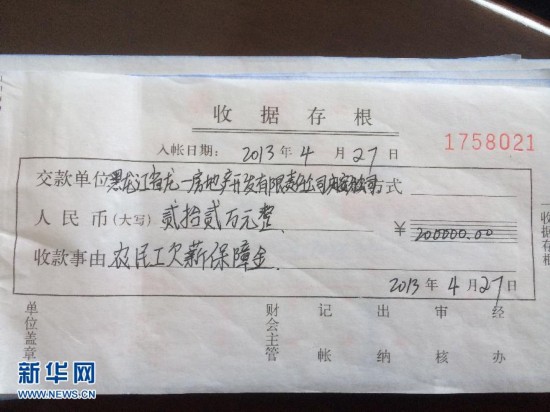 收据存根
入帐日期: 2013 年 4 月 27 日
1758021
交款单位 黑龙江省龙一房地产开发有限责任公司 方式
人民币(大写) 贰拾贰万元整 ¥ 200000.00
收款事由 农民工欠薪保障金
2013 年 4 月 27 日
单位盖章
财会主管
记帐
出纳
审核
经办
收据存根
新华网
WWW.NEWS.CN